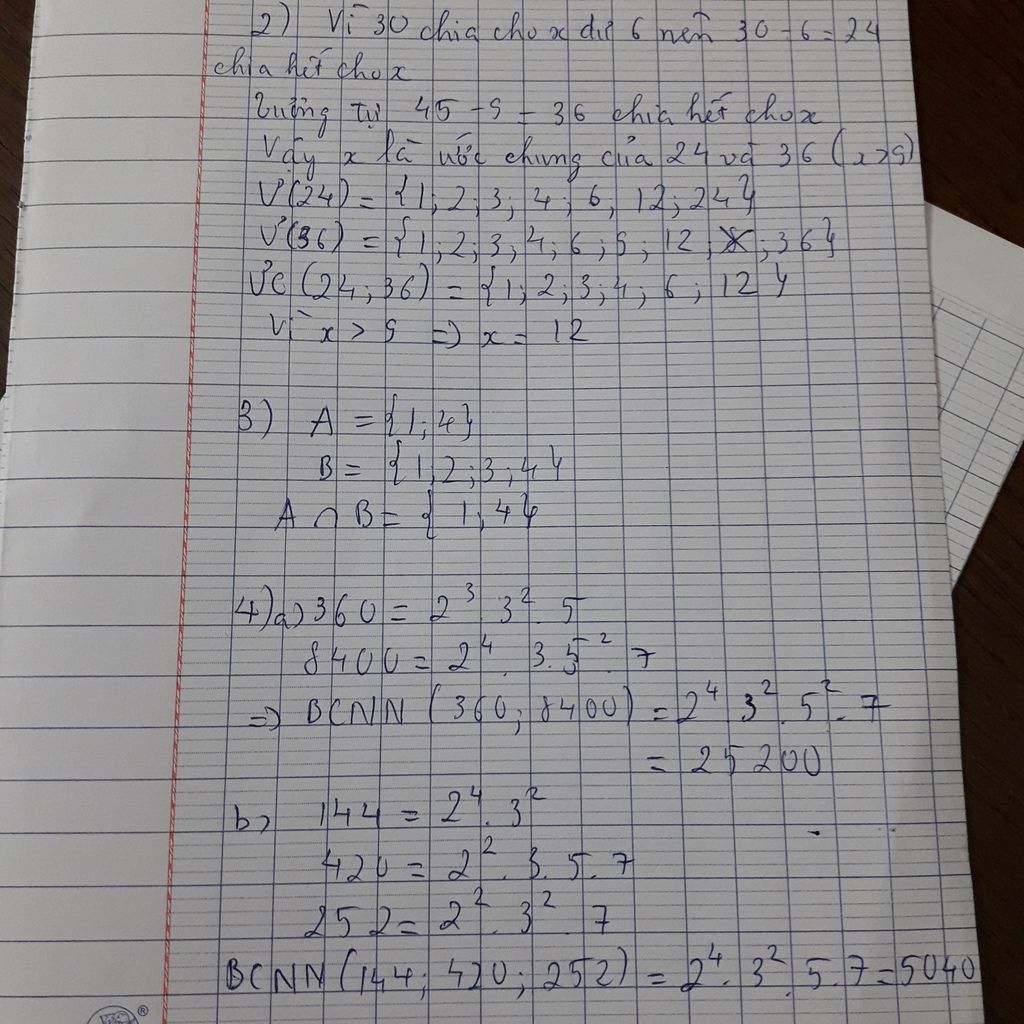 2) Vì 30 chia cho x dư 6 nên 30 - 6 = 24
chia hết cho x
Tương tự 45 - 9 = 36 chia hết cho x
Vậy x là ước chung của 24 và 36 (x > 9)
Ư(24) = {1; 2; 3; 4; 6; 12; 24}
Ư(36) = {1; 2; 3; 4; 6; 9; 12; ; 36}
ƯC (24; 36) = {1; 2; 3; 4; 6; 12}
Vì x > 9 => x = 12
3) A = {1; 4}
B = {1; 2; 3; 4}
A ∩ B = {1; 4}
4) a) 360 = 2³ . 3² . 5
8400 = 2⁴ . 3 . 5² . 7
=> BCNN (360; 8400) = 2⁴ . 3² . 5² . 7
= 25200
b) 144 = 2⁴ . 3²
420 = 2² . 3 . 5 . 7
252 = 2² . 3² . 7
BCNN (144; 420; 252) = 2⁴ . 3² . 5 . 7 = 5040